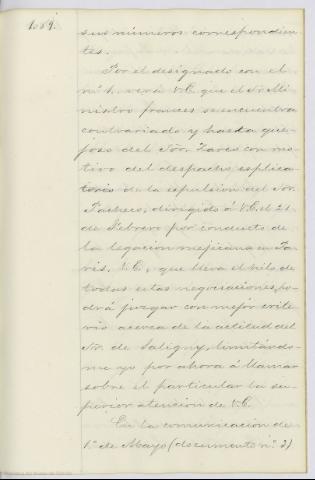 1.89.
sus números correspondien
tes.
Por el designado con el
n.º 1. verá V.E. que el Sr. Mi
nistro frances se encuentra
contrariado y hasta que-
joso del Sõr. Zarco con mo
tivo del despacho esplica
torio de la espulsion del Sor.
Pacheco, dirigido á V.E. el 21
de Febrero por conducto de
la legacion mejicana en Pa
ris. V.E., que lleva el hilo de
todas estas negociaciones, po
drá juzgar con mejor crite
rio acerca de la actitud del
Sr. de Saligny, limitándo-
me yo por ahora á llamar
sobre el particular la su
perior atencion de V.E.
En la comunicacion de
1.º de Mayo (documento nº. 2)